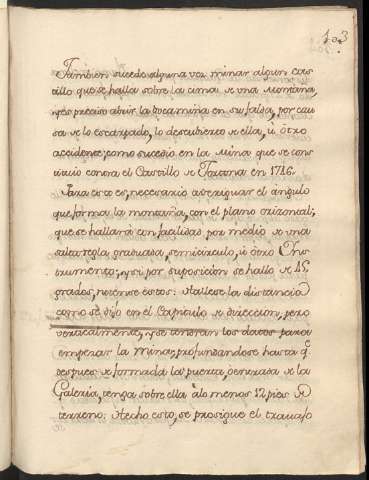 103
Tambien sucede alguna vez minar algun Cas
tillo que se halla sobre la cima de una Montaña,
y es preciso abrir la bocamina en su falda, por cau
sa de lo escarpado, lo descubierto de ella, ù otro
accidente; como sucediò en la Mina que se cons
truìo contra el Castillo de Tortona en 1716.
Para esto es, necesario averiguar el ángulo
que forma la montaña, con el plano orizontal;
que se hallarà con facilidad por medio de una
saltaregla graduada, semicirculo, ù otro Ins
trumento; y si por suposicion se hallò de 45
grados, notense estos: Hallese la distancia
como se dijo en el Capitulo de direccion, pero
verticalmente, y se tendran los datos para
empezar la Mina; profundandose hasta q.e
despues de formada la puerta, ò entrada de la
Galeria, tenga sobre ella àlo menos 12 pies de
terreno. Hecho esto, se prosigue el travajo